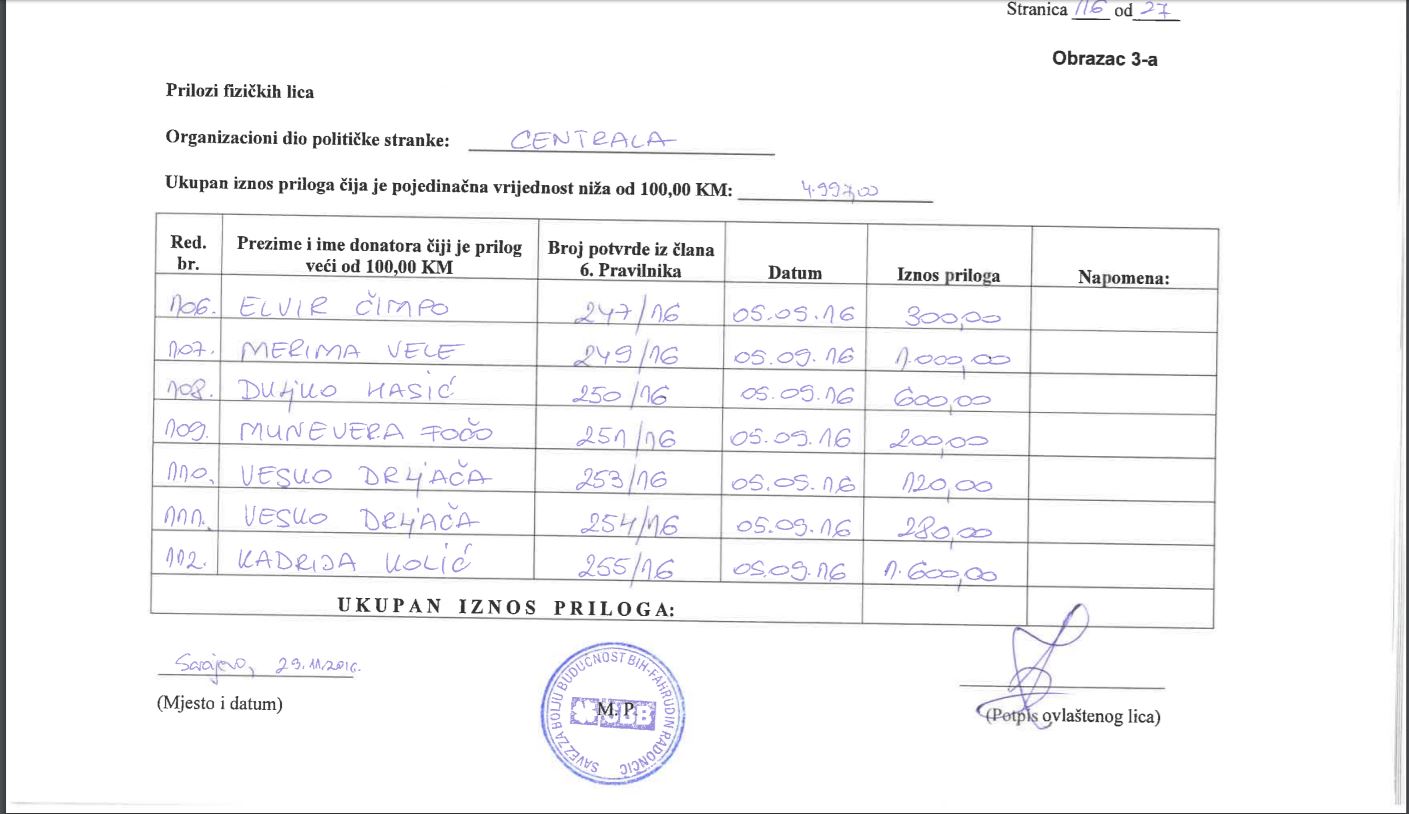 Stranica 16 od 27
Obrazac 3-a
Prilozi fizičkih lica
Organizacioni dio političke stranke: CENTRALA
Ukupan iznos priloga čija je pojedinačna vrijednost niža od 100,00 KM: 4.997,00
Red. br. Prezime i ime donatora čiji je prilog veći od 100,00 KM Broj potvrde iz člana 6. Pravilnika Datum Iznos priloga Napomena:
106. ELVIR ČIMPO 247/16 05.09.16 300,00
107. MERIMA VELE 249/16 05.09.16 1.000,00
108. DULJKO HASIĆ 250/16 05.09.16 600,00
109. MUNEVERA FOČO 251/16 05.09.16 200,00
110. VESKO DRLJAČA 253/16 05.09.16 120,00
111. VESKO DRLJAČA 254/16 05.09.16 280,00
112. KADRIJA KOLIĆ 255/16 05.09.16 1.600,00
UKUPAN IZNOS PRILOGA:
Sarajevo, 29.11.2016.
(Mjesto i datum)
SAVEZ ZA BOLJU BUDUĆNOST BIH-FAHRUDIN RADONČIĆ
SBB
M. P.
(Potpis ovlaštenog lica)